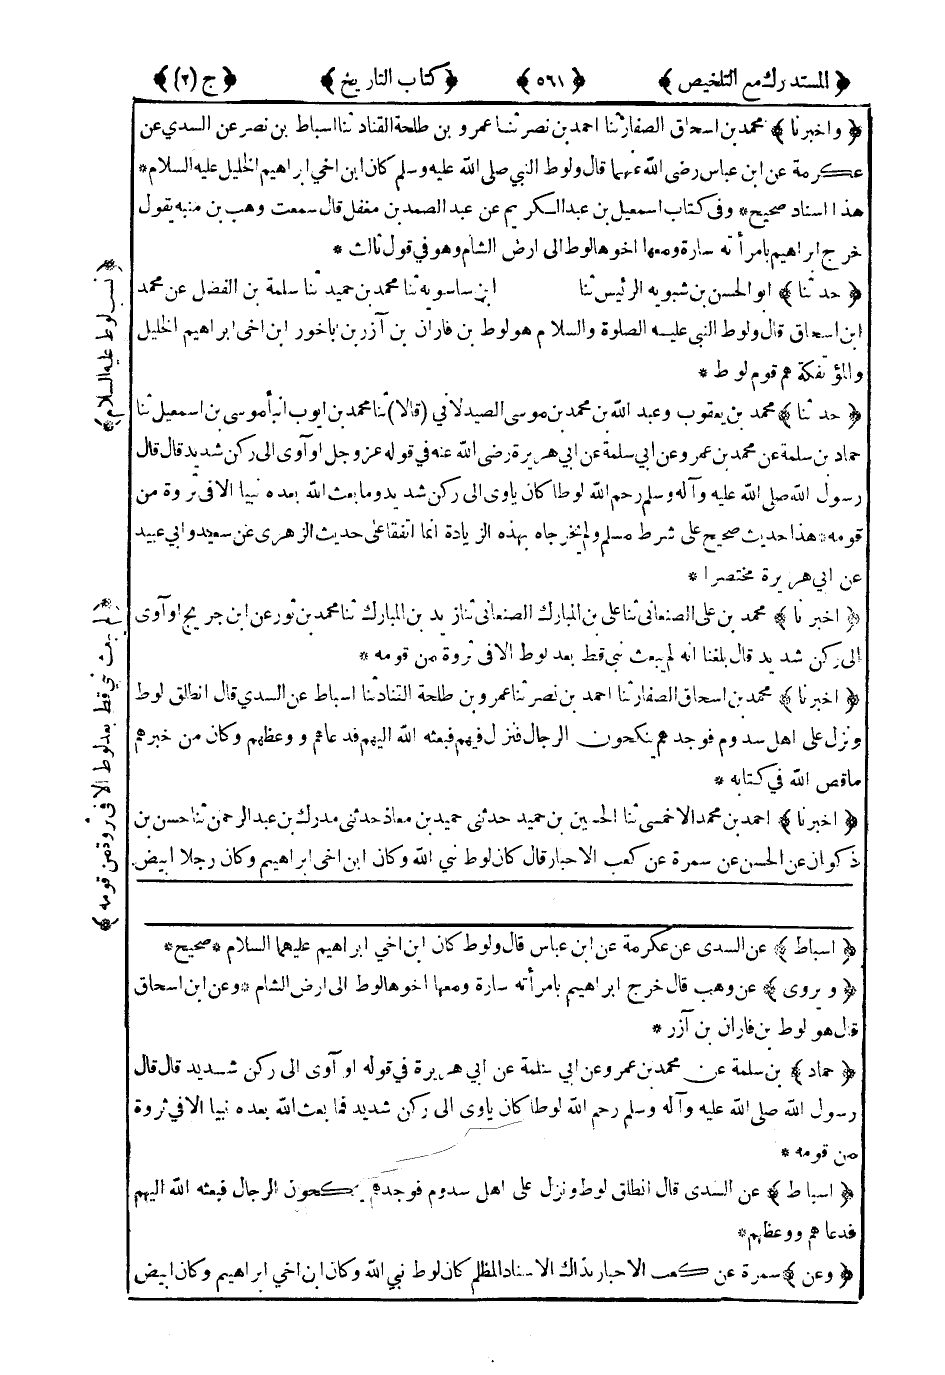 ﴿ المستدرك مع التلخيص ﴾ ﴿ ٥٦١ ﴾ ﴿ كتاب التاريخ ﴾ ﴿ ج (٢) ﴾
﴿ واخبرنا ﴾ محمد بن اسحاق الصفار ثنا احمد بن نصر ثنا عمرو بن طلحة القناد ثنا اسباط بن نصر عن السدي عن
عكرمة عن ابن عباس رضى الله عنهما قال ولوط النبي صلى الله عليه وسلم كان ابن اخي ابراهيم الخليل عليه السلام *
هذا اسناد صحيح * وفى كتاب اسمعيل بن عبد الكريم عن عبد الصمد بن مغفل قال سمعت وهب بن منبه يقول
خرج ابراهيم بامرأته سارة ومعها اخوها لوط الى ارض الشام وهو في قول ثالث *
﴿ حدثنا ﴾ ابو الحسن بن شبويه الرئيس ثنا ابن ساسويه ثنا محمد بن حميد ثنا سلمة بن الفضل عن محمد
ابن اسحاق قال ولوط النبي عليه الصلوة والسلام هو لوط بن فاران بن آزر بن باخور ابن اخى ابراهيم الخليل
والمؤتفكة هم قوم لوط *
﴿ حدثنا ﴾ محمد بن يعقوب وعبد الله بن محمد بن موسى الصيدلاني (قالا) ثنا محمد بن ايوب انبأ موسى بن اسمعيل ثنا
حماد بن سلمة عن محمد بن عمرو عن ابي سلمة عن ابي هريرة رضى الله عنه في قوله عز وجل او آوى الى ركن شديد قال قال
رسول الله صلى الله عليه وآله وسلم رحم الله لوطا كان ياوى الى ركن شديد وما بعث الله بعده نبيا الا فى ثروة من
قومه * هذا حديث صحيح على شرط مسلم ولم يخرجاه بهذه الزيادة انما اتفقا على حديث الزهرى عن سعيد وابي عبيد
عن ابي هريرة مختصرا *
﴿ اخبرنا ﴾ محمد بن على الصنعانى ثنا على بن المبارك الصنعانى ثنا زيد بن المبارك ثنا محمد بن ثور عن ابن جريج او آوى
الى ركن شديد قال بلغنا انه لم يبعث نبي قط بعد لوط الا فى ثروة من قومه *
﴿ اخبرنا ﴾ محمد بن اسحاق الصفار ثنا احمد بن نصر ثنا عمرو بن طلحة القناد ثنا اسباط عن السدي قال انطلق لوط
ونزل على اهل سدوم فوجدهم ينكحون الرجال فنزل فيهم فبعثه الله اليهم فدعاهم ووعظهم وكان من خبرهم
ماقص الله في كتابه *
﴿ اخبرنا ﴾ احمد بن محمد الاخمسى ثنا الحسين بن حميد حدثنى حميد بن معاذ حدثنى مدرك بن عبد الرحمن ثنا حسن بن
ذكوان عن الحسن عن سمرة عن كعب الاحبار قال كان لوط نبي الله وكان ابن اخى ابراهيم وكان رجلا ابيض
﴿ نسب لوط عليه السلام ﴾
﴿ لم يبعث نبي قط بعد لوط الا فى ثروة من قومه ﴾
﴿ اسباط ﴾ عن السدى عن عكرمة عن ابن عباس قال ولوط كان ابن اخي ابراهيم عليهما السلام * صحيح *
﴿ ويروى ﴾ عن وهب قال خرج ابراهيم بامرأته سارة ومعها اخوها لوط الى ارض الشام * وعن ابن اسحاق
قال هو لوط بن فاران بن آزر *
﴿ حماد ﴾ بن سلمة عن محمد بن عمرو عن ابي سلمة عن ابي هريرة في قوله او آوى الى ركن شديد قال قال
رسول الله صلى الله عليه وآله وسلم رحم الله لوطا كان ياوى الى ركن شديد فما بعث الله بعده نبيا الا في ثروة
من قومه *
﴿ اسباط ﴾ عن السدى قال انطلق لوط ونزل على اهل سدوم فوجدهم ينكحون الرجال فبعثه الله اليهم
فدعاهم ووعظهم *
﴿ وعن ﴾ سمرة عن كعب الاحبار بذاك الاسناد المظلم كان لوط نبي الله وكان ابن اخي ابراهيم وكان ابيض